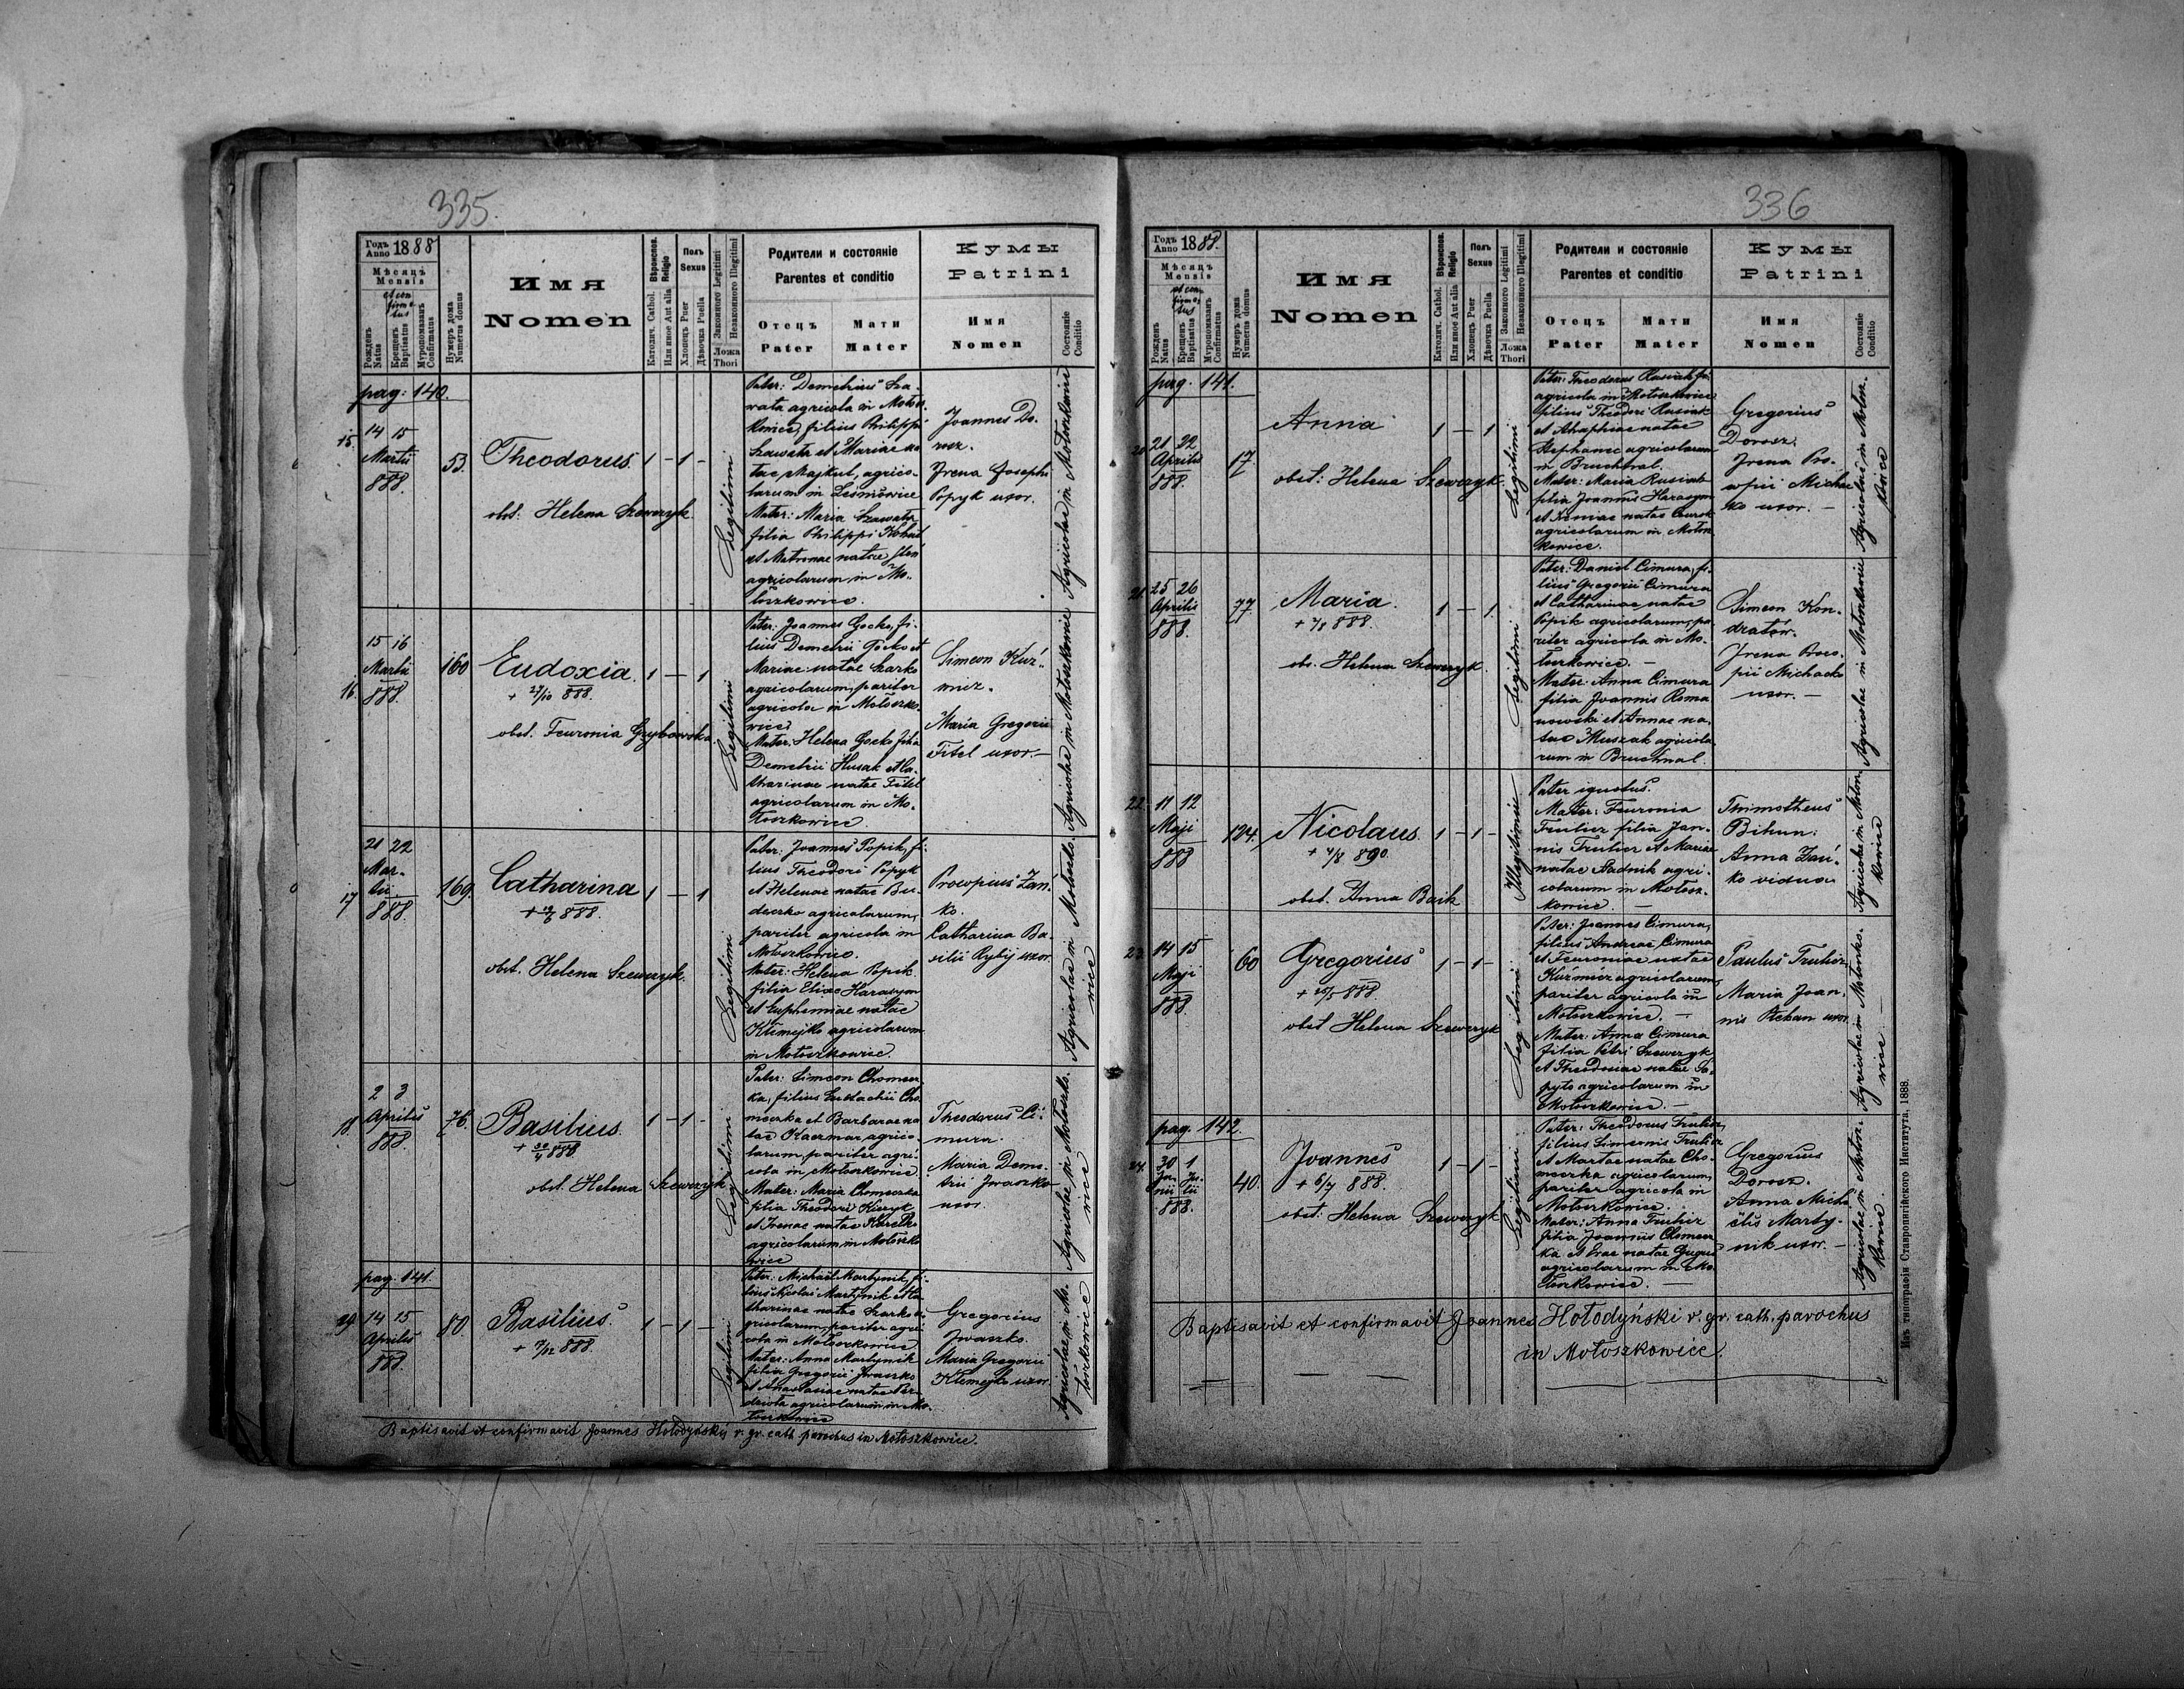 335.
Годъ Anno 1888
Мѣсяцъ Mensis
Рожденъ Natus
Крещенъ Baptisatus
et confirmatus
Муропомазанъ Confirmatus
Нумеръ дома Numerus domus
Имя
Nomen
Вѣроиспов. Religio
Католич. Cathol.
Или иное Aut alia
Полъ Sexus
Хлопецъ Puer
Дѣвочка Puella
Законного Legitimi
Незаконного Illegitimi
Ложа Thori
Родители и состояніе
Parentes et conditio
Отецъ Pater
Мати Mater
Кумы
Patrini
Имя Nomen
Состояніе Conditio
pag: 140.
15
14 15
Martii
888.
53.
Theodorus.
1 - 1 -
obst: Helena Szewczyk.
Legitimi
Pater: Demetrius Sza-
wata agricola in Motosz-
kowice, filius Philippi
Szawata et Mariae na-
tae Majkut, agrico-
larum in Leśniowice
Mater: Maria Szawata
filia Philippi
et Matronae natae
agricolarum in Mo-
toszkowice.
Joannes Do-
rosz.
Irena Josephi
Popyk uxor.
Agricolae in Motoszkowice
16.
15 16
Martii
888.
160
Eudoxia.
+ 27/10 888.
1 - 1
obst. Feuronia Grzybowska
Legitimi
Pater: Joannes Gocko, fi-
lius Demetrii Gocko et
Mariae natae Szarko
agricolarum, pariter
agricola in Motoszko-
wice.
Mater: Helena Gocko filia
Demetrii Husak et Ca-
tharinae natae Fitel
agricolarum in Mo-
toszkowice
Simeon Kuź-
micz.
Maria Gregorii
Fitel uxor.-
Agricolae in Motoszkowice
17
21 22
Mar-
tii
888.
169.
Catharina
888.
1 - 1
obst. Helena Szewczyk.
Legitimi
Pater: Joannes Popik, fi-
lius Theodori Popyk
et Helenae natae Bur-
deczko agricolarum,
pariter agricola in
Motoszkowice.
Mater: Helena Popik
filia Eliae Harasym
et Euphemiae natae
Klimejko agricolarum
in Motoszkowice.
Procopius Zan-
ko.
Catharina Ba-
silii Rybij uxor
Agricolae in Motoszko-
wice
18.
2 3
Aprilis
888.
76.
Basilius.
1 - 1 -
obst. Helena Szewczyk
Legitimi
Pater: Simeon Chomecz-
ka, filius Eustachii Cho-
meczka et Barbarae na-
tae Kaczmar, agrico-
larum, pariter agri-
cola in Motoszkowice
Mater: Maria Chomeczka
filia Theodori
et Irenae natae
agricolarum in Motoszko-
wice
Theodorus Ci-
mura.
Maria Deme-
trii Iwaszko
uxor.
Agricolae in Motoszko-
wice
pag. 141.
19
14 15
Aprilis
888.
80
Basilius.
+ 7/12 888.
1 - 1 -
Legitimi
Pater: Michael Martynik, fi-
lius Nicolai Martynik et Ca-
tharinae natae Szarko a-
gricolarum, pariter agri-
cola in Motoszkowice
Mater: Anna Martynik
filia Gregorii Iwaszko
et Anastasiae natae
agricolarum in Mo-
toszkowice
Gregorius
Iwaszko.
Maria Gregorii
Klimejko uxor.
Agricolae in Mo-
toszkowice
Baptisavit et confirmavit Joannes Hołodyński r. gr. cath. parochus in Motoszkowice.
336
Годъ Anno 1888.
Мѣсяцъ Mensis
Рожденъ Natus
Крещенъ Baptisatus
et confirmatus
Муропомазанъ Confirmatus
Нумеръ дома Numerus domus
Имя
Nomen
Вѣроиспов. Religio
Католич. Cathol.
Или иное Aut alia
Полъ Sexus
Хлопецъ Puer
Дѣвочка Puella
Законного Legitimi
Незаконного Illegitimi
Ложа Thori
Родители и состояніе
Parentes et conditio
Отецъ Pater
Мати Mater
Кумы
Patrini
Имя Nomen
Состояніе Conditio
pag. 141.
20
21 22
Aprilis
888.
17.
Anna
1 - 1
obst: Helena Szewczyk.
Legitimi
Pater: Theodorus Rusiak,
agricola in Motoszkowice
filius Theodori Rusiak
et Ahaphiae natae
Stephanec agricolarum
in Bruchnal.
Mater: Maria Rusiak
filia Joannis Harasym
et Xeniae natae
agricolarum in Motosz-
kowice.
Gregorius
Dorosz.
Irena Pro-
copii Micha-
ko uxor. -
Agricolae in Motosz-
kowice
21.
25 26
Aprilis
888.
77.
Maria.
888.
1 - 1.
ob. Helena Szewczyk.
Legitimi
Pater: Daniel Cimura, fi-
lius Gregorii Cimura
et Catharinae natae
Popik agricolarum, pa-
riter agricola in Mo-
toszkowice. -
Mater: Anna Cimura
filia Joannis Roma-
nowski et Annae na-
tae Muszak agricola-
rum in Bruchnal
Simeon Kon-
drator.
Irena Proco-
pii Michacko
uxor. -
Agricolae in Motoszkowice
22.
11 12
Maji
888
124.
Nicolaus.
890.
1 - 1 -
obst. Anna Baik
Illegitimi
Pater ignotus.
Mater: Feuronia
Truhier filia Joan-
nis Truhier et Mariae
natae Sadnik agri-
colarum in Motosz-
kowice. -
Timotheus
Bihun.
Anna Zań-
ko vidua
Agricolae in Motosz-
kowice
23.
14 15
Maji
888.
60
Gregorius
888.
1 - 1 -
obst Helena Szewczyk
Legitimi
Pater: Joannes Cimura,
filius Andreae Cimura
et Feuroniae natae
Kuźmicz agricolarum,
pariter agricola in
Motoszkowice. -
Mater: Anna Cimura
filia Petri Szewczyk
et Theodosiae natae
agricolarum in
Motoszkowice. -
Paulus Truhier
Maria Joan-
nis Pekan uxor
Agricolae in Motoszko-
wice
pag. 142.
24.
30 1
Ju- Ju-
nii lii
888.
40.
Joannes
+ 6/7 888.
1 - 1 -
obst: Helena Szewczyk
Legitimi
Pater: Theodorus Truhier,
filius Simeonis Truhier
et Martae natae Cho-
meczka agricolarum,
pariter agricola in
Motoszkowice.
Mater: Anna Truhier
filia Joannis Chomecz-
ka et Evae natae
agricolarum in Mo-
toszkowice. -
Gregorius
Dorosz.
Anna Micha-
elis Marty-
nik uxor. -
Agricolae in Motosz-
kowice.
Baptisavit et confirmavit Joannes Hołodyński r. gr. cath. parochus
in Motoszkowice.
Изъ типографіи Ставропигійского Института. 1888.